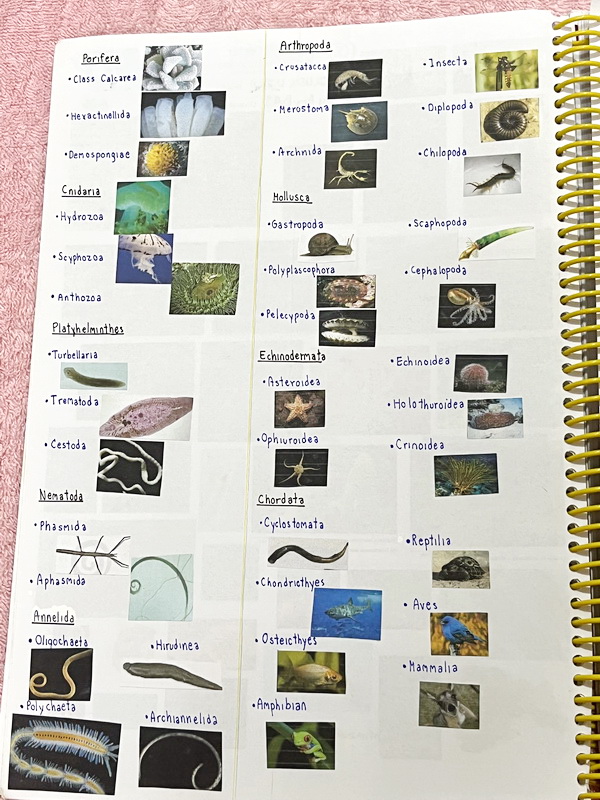 Porifera
• Class Calcarea
• Hexactinellida
• Demospongiae
Cnidaria
• Hydrozoa
• Scyphozoa
• Anthozoa
Platyhelminthes
• Turbellaria
• Trematoda
• Cestoda
Nematoda
• Phasmida
• Aphasmida
Annelida
• Oligochaeta
• Hirudinea
• Polychaeta
• Archiannelida
Arthropoda
• Crusatacea
• Insecta
• Merostoma
• Diplopoda
• Archnida
• Chilopoda
Mollusca
• Gastropoda
• Scaphopoda
• Polyplascophora
• Cephalopoda
• Pelecypoda
Echinodermata
• Echinoidea
• Asteroidea
• Holothuroidea
• Ophiuroidea
• Crinoidea
Chordata
• Cyclostomata
• Reptilia
• Chondriethyes
• Aves
• Osteicthyes
• Mammalia
• Amphibian